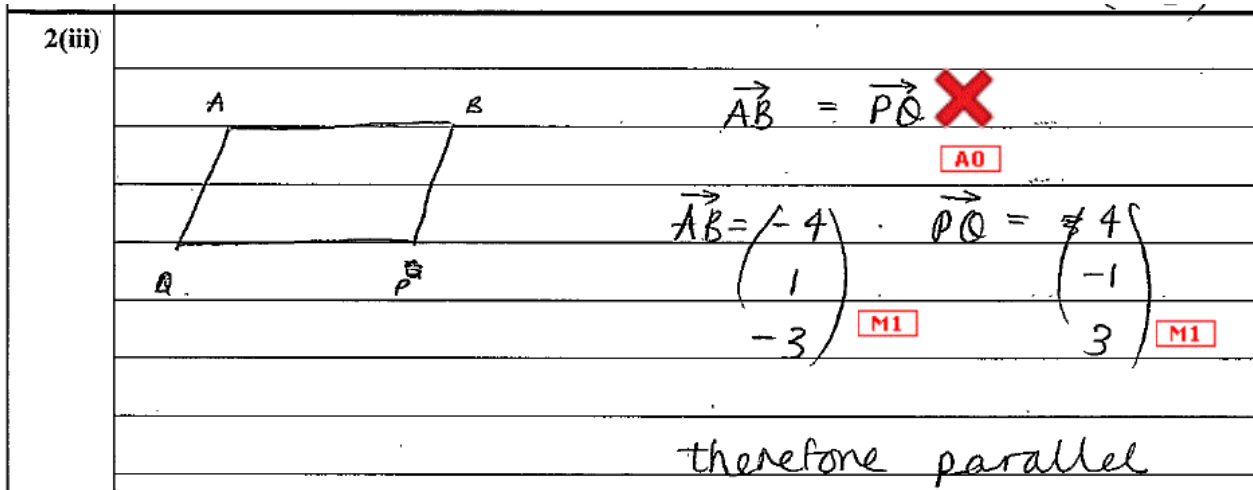 2(iii)
A B
Q. P
AB = PQ
A0
AB = (-4 1 -3) . PQ = (4 -1 3)
M1 M1
therefore parallel